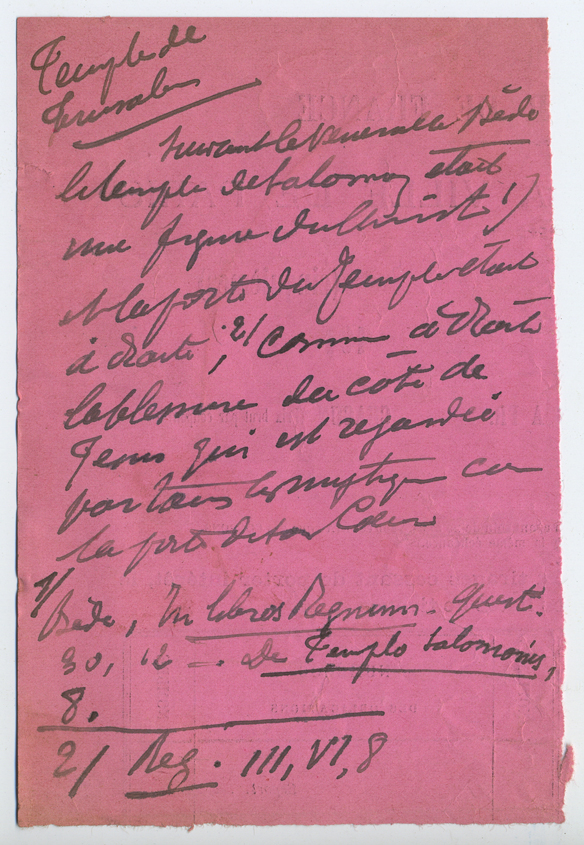 Temple de
Jerusalem
Suivant le Venerable Bède
le temple de Salomon etait
une figure du Christ 1/
et la porte du Temple etait
à droite, 2/ comme à droite
la blessure du côté de
Jesus qui est regardée
par tous les mystiques
la porte de son Coeur
1/
Bède, In libros Regnum. Quest.
30, 12 =. De Templo Salomonis,
8.
2/ Reg. III, VI, 8